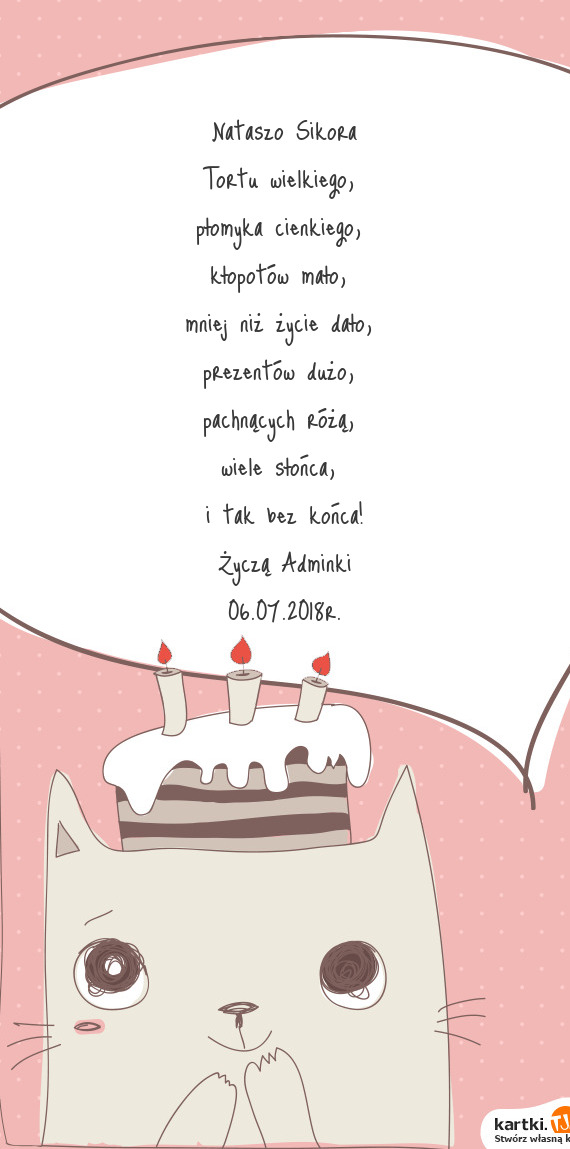 Nataszo Sikora
Tortu wielkiego,
płomyka cienkiego,
kłopotów mało,
mniej niż życie dało,
prezentów dużo,
pachnących różą,
wiele słońca,
i tak bez końca!
Życzą Adminki
06.07.2018r.
kartki.TJ
Stwórz własną k